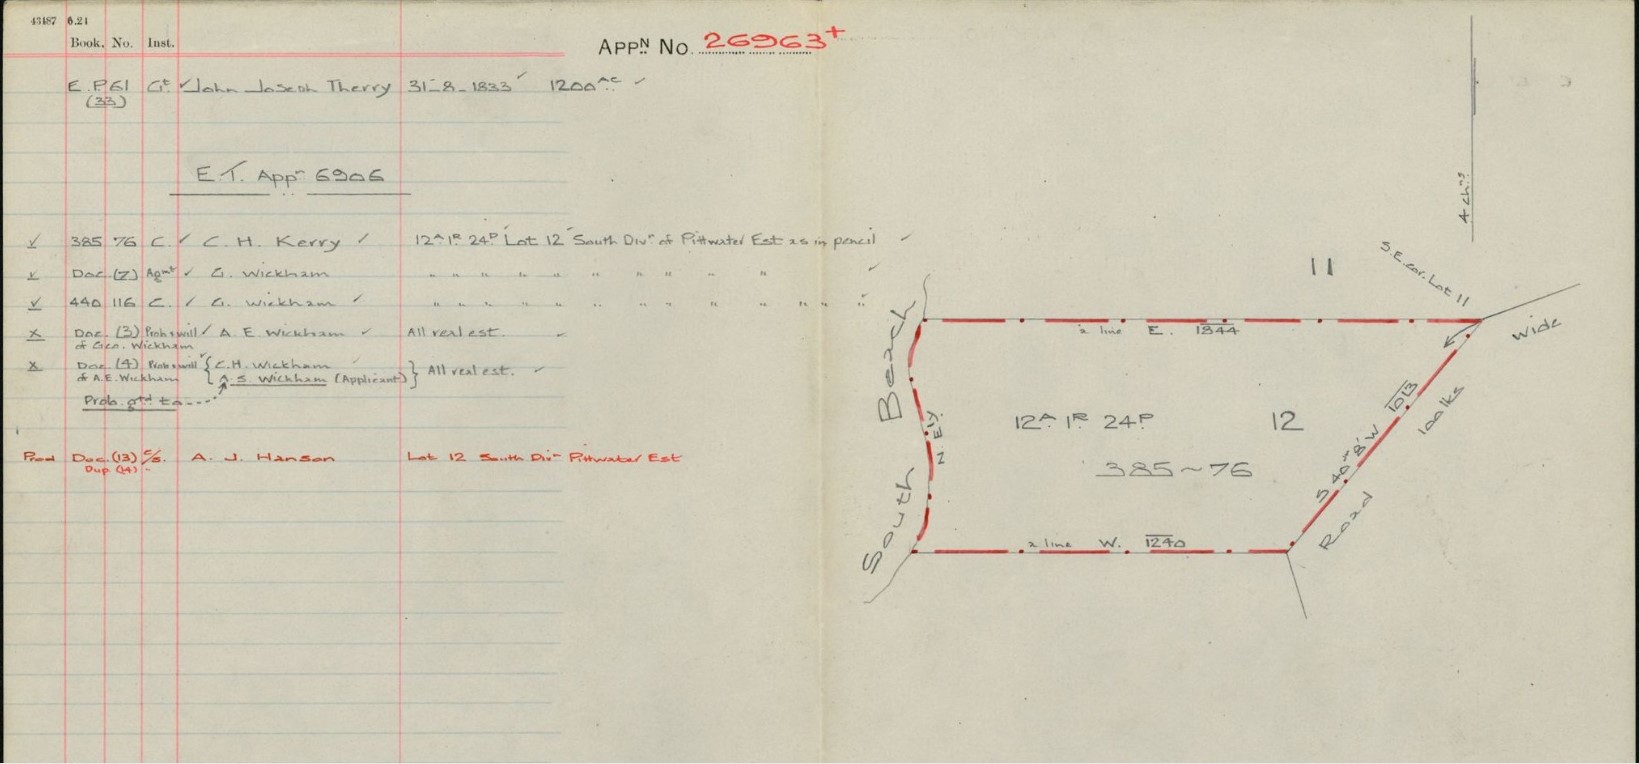 43187 6.21
Book. No. Inst.
APPN No. 26963+
E.P.61 Gt ✓ John Joseph Therry 31-8-1833 ✓ 1200 AC ✓
(33)
E.T. Appn 6906
✓ 385 76 C. ✓ C. H. Kerry ✓ 12A 1R 24P Lot 12 South Divn of Pittwater Est as in pencil ✓
✓ Doc. (2) Agmt ✓ G. Wickham " " " " " " " " " " ✓
✓ 440 116 C. ✓ G. Wickham ✓ " " " " " " " " " " " "
x Doc. (3) Prob & will ✓ A. E Wickham ✓ All real est. ✓
of Geo. Wickham
x Doc. (4) Prob & will { C.H. Wickham ✓
of A.E. Wickham { A.S. Wickham (Applicant) } All real est. ✓
Prob. grtd to
Prod Doc. (13) C/S. A. J. Hanson Lot 12 South Divn Pittwater Est
Dup. (14) "
4 chns
11
S.E. cor. Lot 11
a line E. 1844
wide
South Beach
N. Ely.
12A 1R 24P 12
385~76
S 40° 8' W 1013
100 lks
Road
a line W. 1240